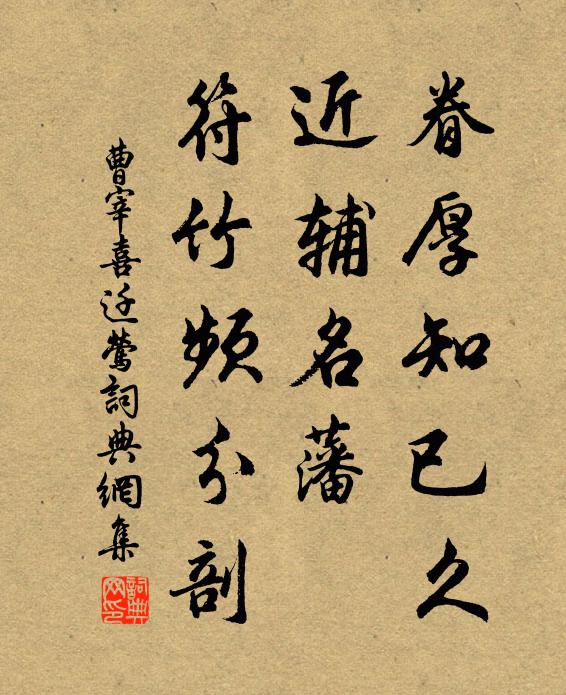 眷厚知已久
近辅名藩
符竹频分剖
曹宰喜迁莺詞典網集
詞典网印